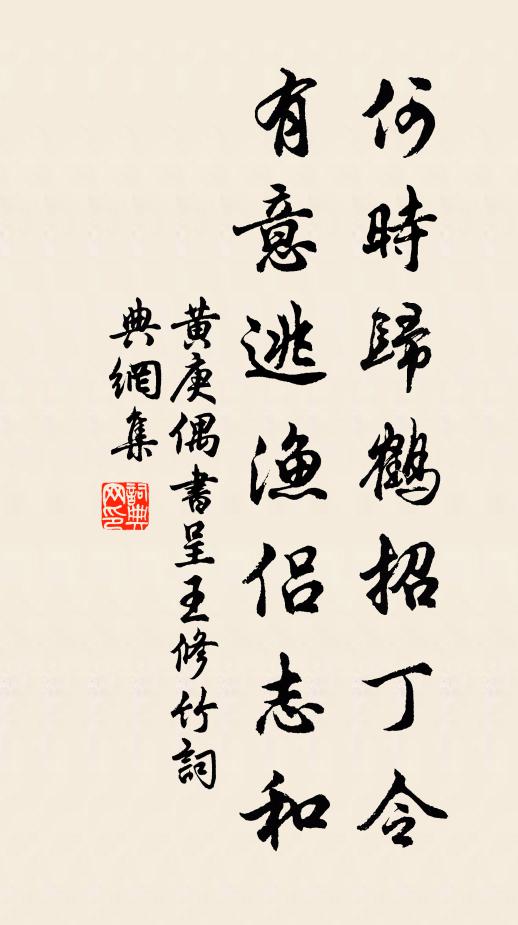 何時歸鶴招丁令
有意逃漁侣志和
黃庚偶書呈王修竹詞
典網集
詞典
网印